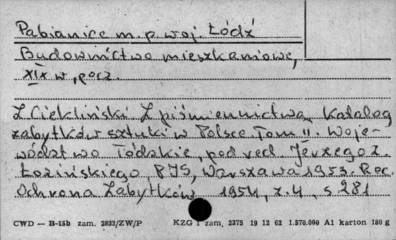 Pabianice m. p. woj. Łódź
Budownictwo mieszkaniowe,
XIX w, pocz.
Z. Ciekliński Z piśmiennictwa. Katalog
zabytków sztuki w Polsce. Tom II. Woje-
wództwo Łódzkie, pod red. Jerzego Z.
Łozińskiego, PJS, Warszawa 1953. Rec.
Ochrona Zabytków 1954, z. 4, s 281
CWD — B-15b zam. 2832/ZW/P KZG 1 zam. 2375 19 12 62 1.570.000 A1 karton 180 g